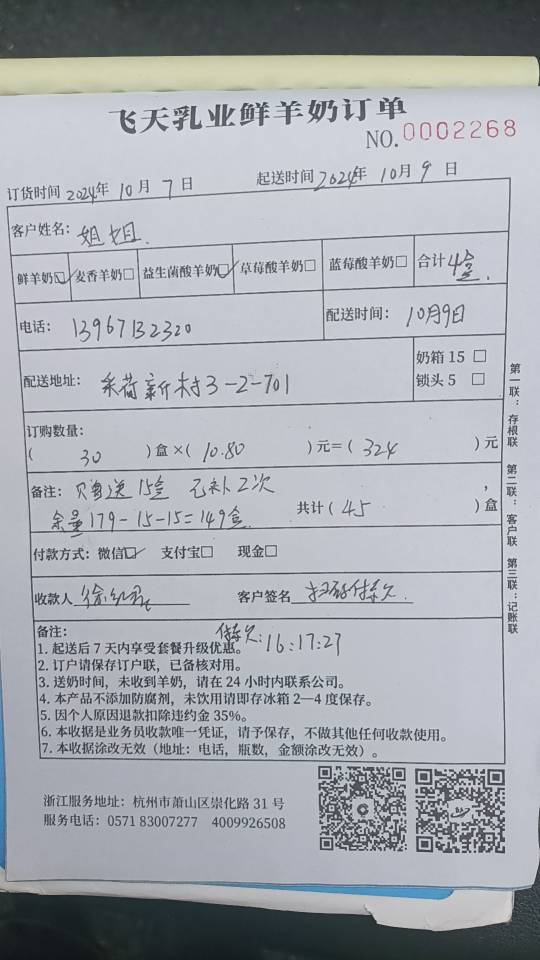 飞天乳业鲜羊奶订单
NO.0002268
订货时间 2024年 10月 7日 起送时间 2024年 10月 9日
客户姓名: 姐姐.
鲜羊奶☑ 麦香羊奶□ 益生菌酸羊奶☑ 草莓酸羊奶□ 蓝莓酸羊奶□ 合计4盒.
电话: 13967132320 配送时间: 10月9日
配送地址: 采荷新村3-2-701
奶箱 15 □
锁头 5 □
订购数量:
( 30 )盒×( 10.80 )元=( 324 )元
备注: 赠送15盒 已补2次
余量179-15-15=149盒. 共计( 45 )盒
付款方式: 微信☑ 支付宝□ 现金□
收款人 徐 客户签名 扫码付款
备注: 16:17:27
1. 起送后 7 天内享受套餐升级优惠。
2. 订户请保存订户联，已备核对用。
3. 送奶时间，未收到羊奶，请在 24 小时内联系公司。
4. 本产品不添加防腐剂，未饮用请即存冰箱 2—4 度保存。
5. 因个人原因退款扣除违约金 35%。
6. 本收据是业务员收款唯一凭证，请予保存，不做其他任何收款使用。
7. 本收据涂改无效（地址：电话，瓶数，金额涂改无效）。
浙江服务地址：杭州市萧山区崇化路 31 号
服务电话：0571 83007277 4009926508
第一联：存根联 第二联：客户联 第三联：记账联